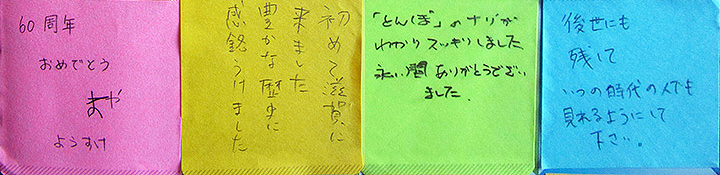 60周年
おめでとう
まや
ようすけ
初めて滋賀に
来ました
豊かな歴史に
感銘うけました
「とんぼ」のナゾが
わかりスッキリしました
永い間ありがとうござい
ました.
後世にも
残して
いつの時代の人でも
見れるようにして
下さい。